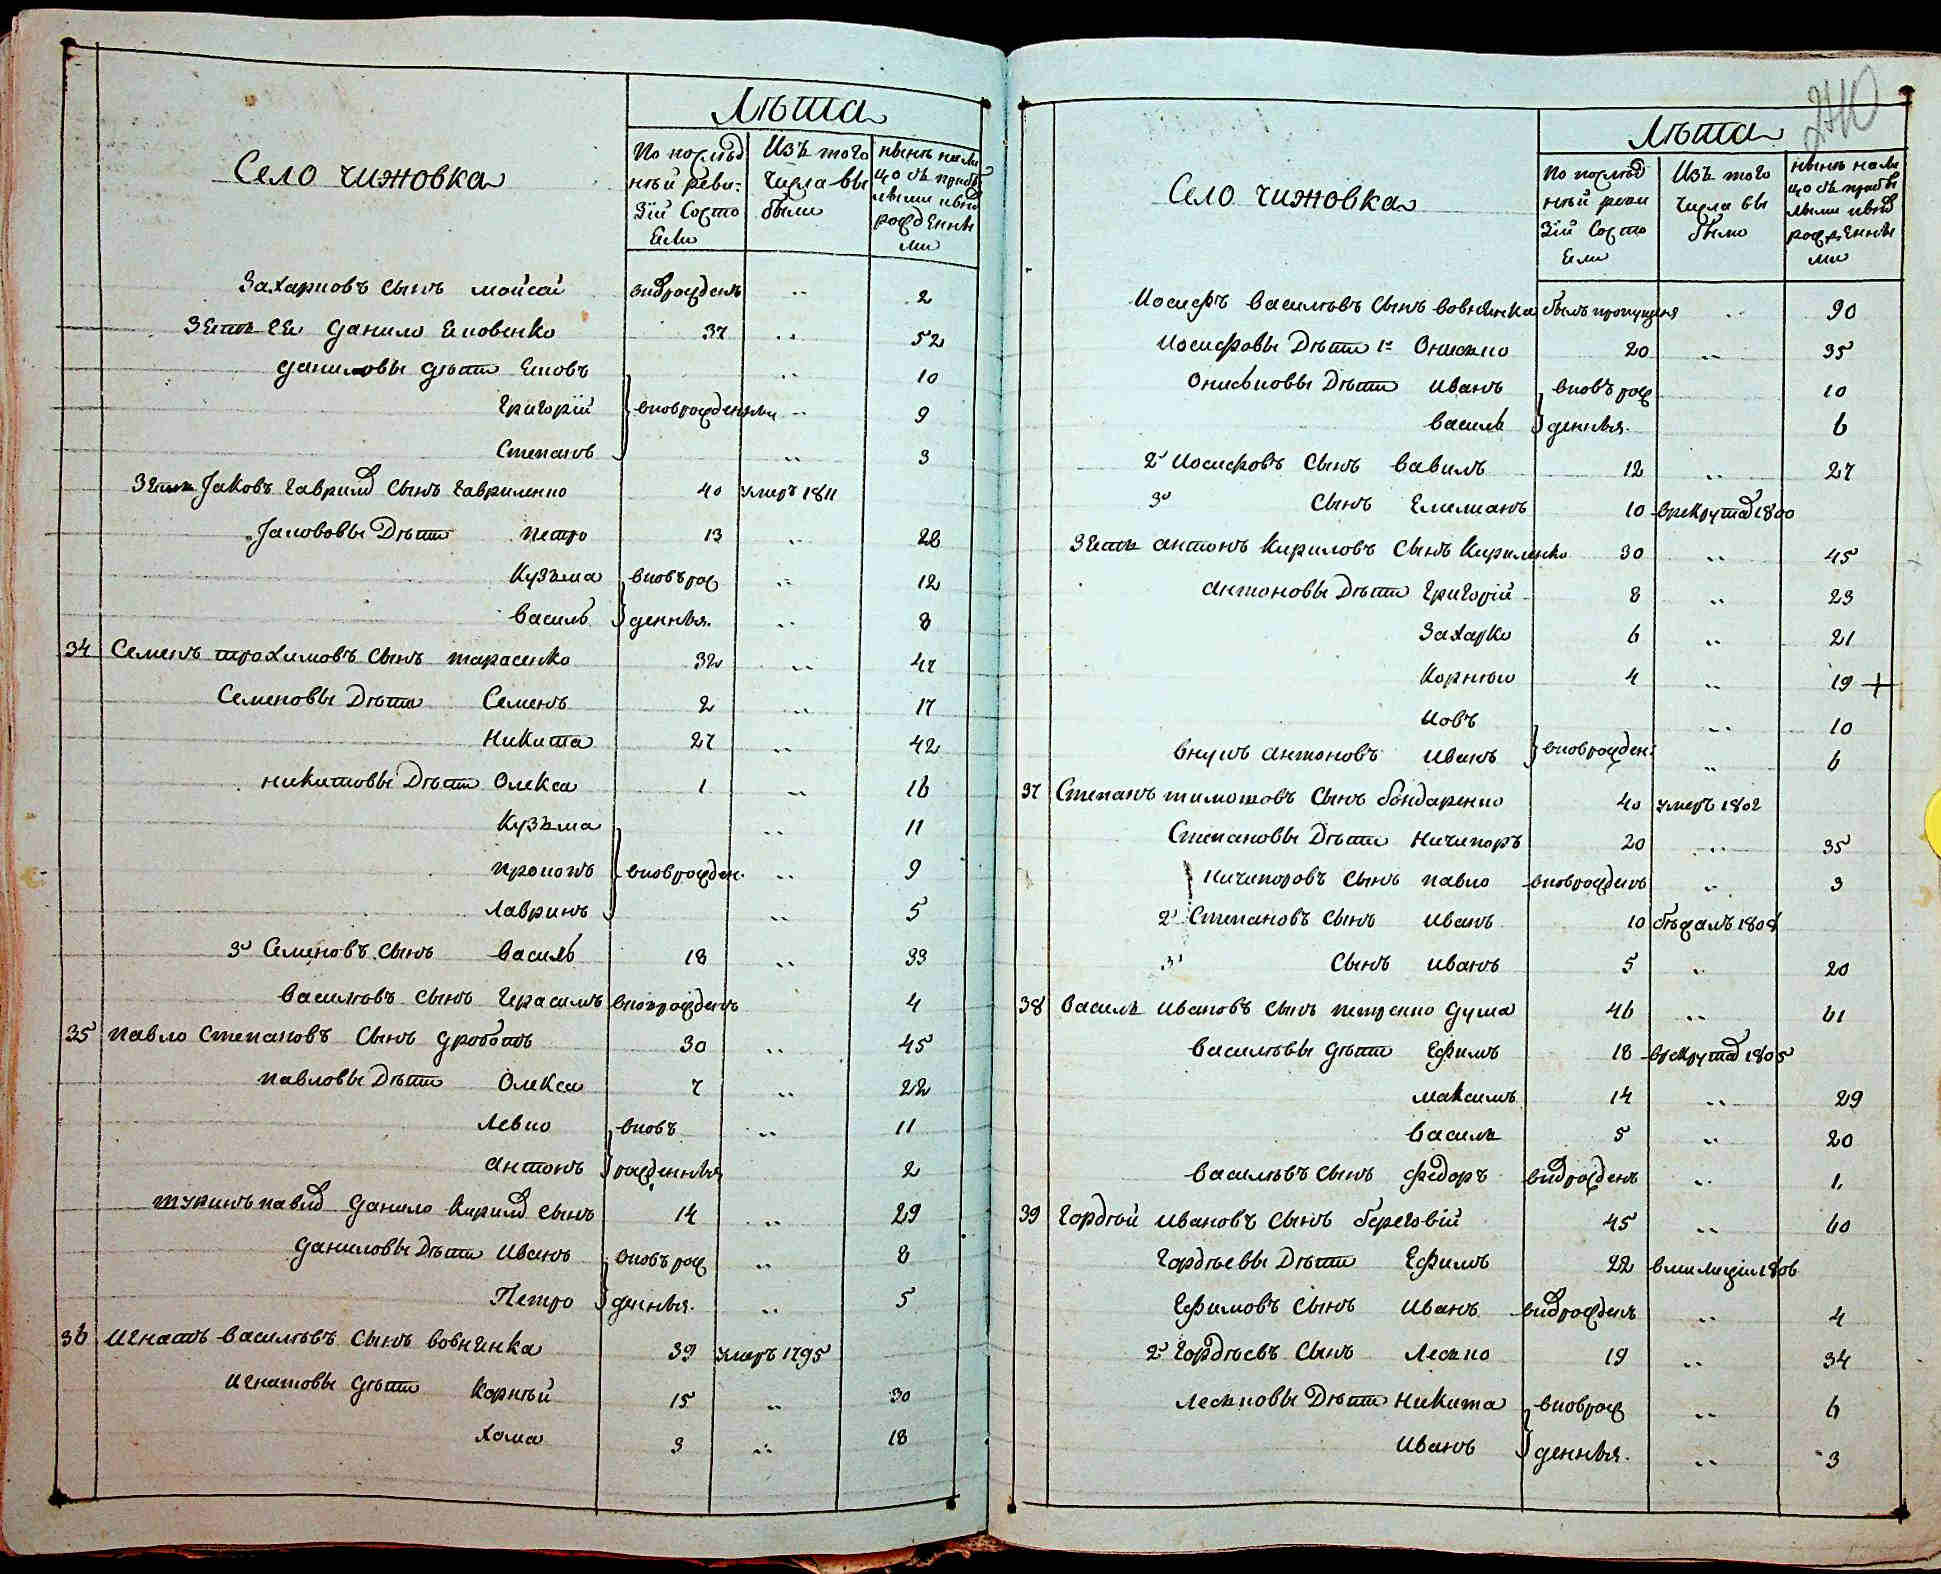 Село чижовка
Лѣта
По послѣд
ней реви:
зіи состо
яли
Изъ того
числа вы
были
нынѣ нали
цо съ прибы
лыми и внов
рожденны
ми
Захарковъ сынъ мойсѣй вноврожденъ „ 2
Зять ея данило еловенко 37 „ 52
даниловы дѣти еловъ „ 10
григорій вноврожденныи „ 9
степанъ „ 3
Зять Јаковъ гаврилов сынъ гавриленко 40 умеръ 1811
Јаковovы дѣти петро 13 „ 28
кузьма вновърож „ 12
василь денныя. „ 8
34 Семенъ трохимовъ сынъ тарасенко 32 „ 47
Семеновы дѣти Семенъ 2 „ 17
никита 27 „ 42
никитовы дѣти Олекса 1 „ 16
кузьма „ 11
прокопъ вноврожден. „ 9
лавринъ „ 5
3й Семеновъ сынъ василь 18 „ 33
васильовъ сынъ герасимъ вноврожденъ 4
35 павло степановъ сынъ дроботъ 30 „ 45
павловы дѣти Олекса 7 „ 22
левко вновъ „ 11
антонъ рожденныя 2
павлов данило кирилов сынъ 14 „ 29
даниловы дѣти иванъ вновърож „ 8
Петро денныя. „ 5
36 игнатъ васильовъ сынъ вовнянка 39 умеръ 1795
игнатовы дѣти корнѣй 15 „ 30
хома 3 „ 18
240
Село чижовка
Лѣта
По послѣд
ней реви
зіи состо
яли
Изъ того
числа вы
были
нынѣ нали
цо съ прибы
лыми и внов
рожденны
ми
Иосифъ васильовъ сынъ вовнянка былъ пропущеня „ 90
Иосифовы дѣти 1й Онисько 20 „ 35
Ониськовы дѣти иванъ вновърож 10
василь денныя. 6
2й Иосифовъ сынъ вавилъ 12 „ 27
3й сынъ емелианъ 10 врекрута 1800
Зять антонъ кириловъ сынъ кириленко 30 „ 45
антоновы дѣти григорій 8 „ 23
Захарко 6 „ 21
корнѣи 4 „ 19 +
иовъ „ 10
внукъ антоновъ иванъ вноврожден: „ 6
37 Степанъ тимошовъ сынъ бондаренко 40 умеръ 1802
Степановы дѣти ничипоръ 20 „ 35
ничипоровъ сынъ павло вноврожденъ „ 3
2й Степановъ сынъ иванъ 10 бѣжалъ 1808
3й сынъ иванъ 5 „ 20
38 Василь ивановъ сынъ петренко душа 46 „ 61
васильовы дѣти ефимъ 18 врекрута 1805
максимъ 14 „ 29
василь 5 „ 20
васильовъ сынъ федоръ вноврожденъ „ 1.
39 гордѣй ивановъ сынъ береговій 45 „ 60
гордѣевы дѣти ефимъ 22 вмилицію 1806
ефимовъ сынъ иванъ вноврожденъ „ 4
2й гордѣевъ сынъ лесько 19 „ 34
леськовы дѣти никита вноврож „ 6
иванъ денныя. „ 3